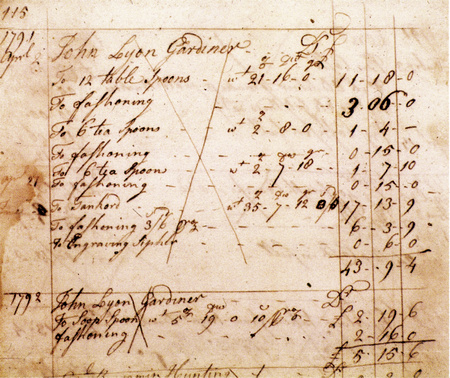 115
1791 John Lyon Gardiner Dr
April To 12 table Spoons wt 21-16-0 11-18-0
To fashoning 3-06-0
To 6 tea Spoons wt 2-8-0 1-4-
To fashoning 0-15-0
To 6 tea Spoons wt 2-7-18 1-7-10
To fashoning 0-15-0
To Tankord wt 35-7-12 17-13-9
To fashoning 3/6 6-3-9
& Engraving Sipher 0-6-0
43-9-4
1792 John Lyon Gardiner Dr
To Soop Spoon wt 5 19 0 £ 2-19-6
fashoning 2-16-0
£ 5-15-6